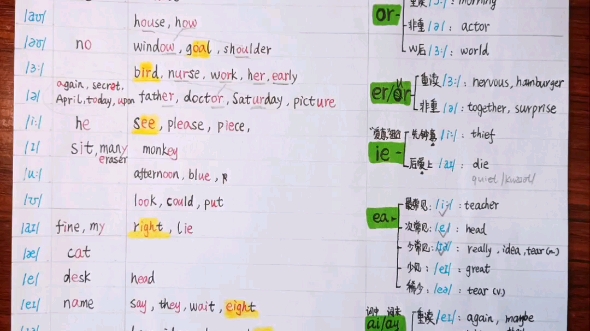 /aʊ/ house, how
/əʊ/ no window, goal, shoulder
/ɜː/ bird, nurse, work, her, early
/ə/ again, secret, April, today, upon father, doctor, Saturday, picture
/iː/ he see, please, piece,
/ɪ/ sit, many eraser monkey
/uː/ afternoon, blue,
/ʊ/ look, could, put
/aɪ/ fine, my right, lie
/æ/ cat
/e/ desk head
/eɪ/ name say, they, wait, eight
or
重读 /ɔː/: morning
非重 /ə/: actor
W后 /ɜː/: world
er/or
重读 /ɜː/: nervous, hamburger
非重 /ə/: together, surprise
ie
/iː/: thief
/aɪ/: die
quiet
ea
最常见: /iː/: teacher
次常见: /e/: head
少常见: /ɪə/: really, idea, tear(n.)
少见: /eɪ/: great
稀少: /eə/: tear (v.)
ai/ay
重读 /eɪ/: again, maybe